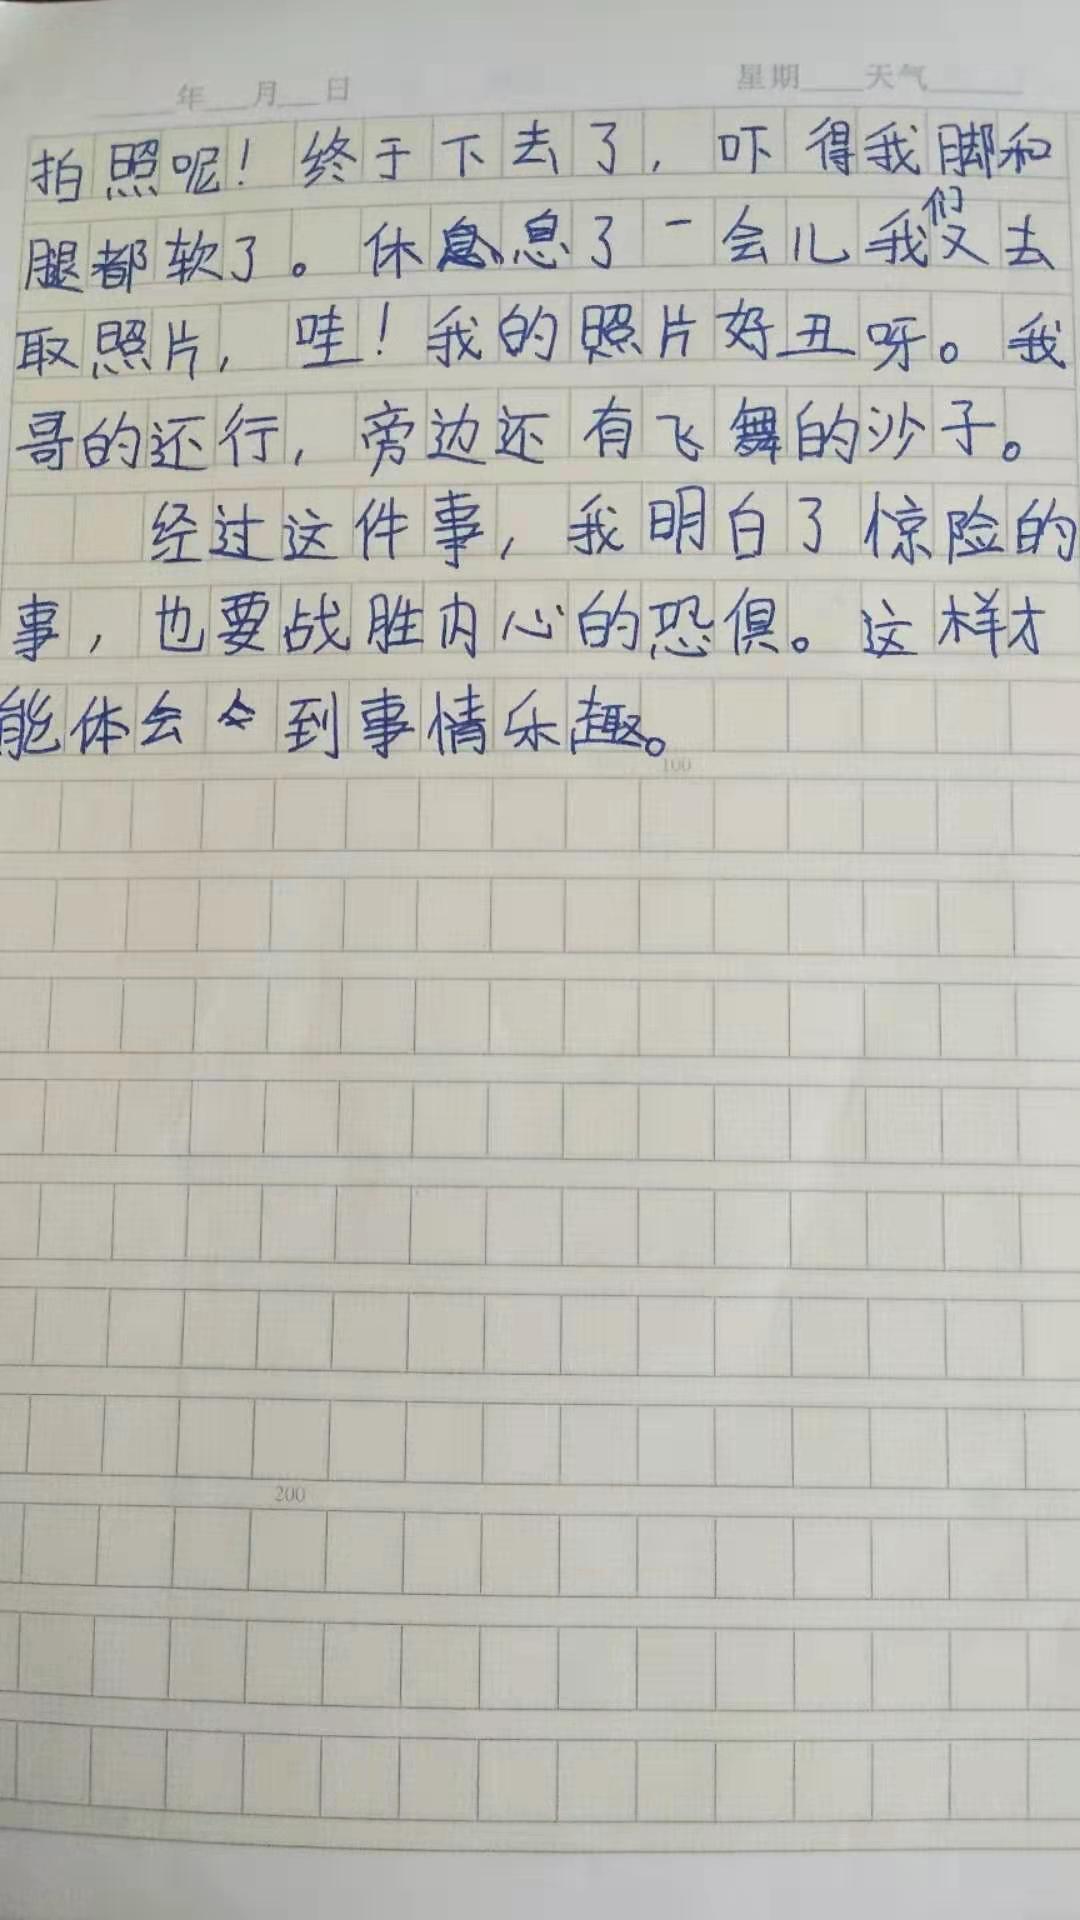 年 月 日 星期 天气
拍照呢！终于下去了，吓得我脚和
腿都软了。休息了一会儿我们又去
取照片，哇！我的照片好丑呀。我
哥的还行，旁边还有飞舞的沙子。
经过这件事，我明白了惊险的
事，也要战胜内心的恐俱。这样才
能体会到事情乐趣。
100
200